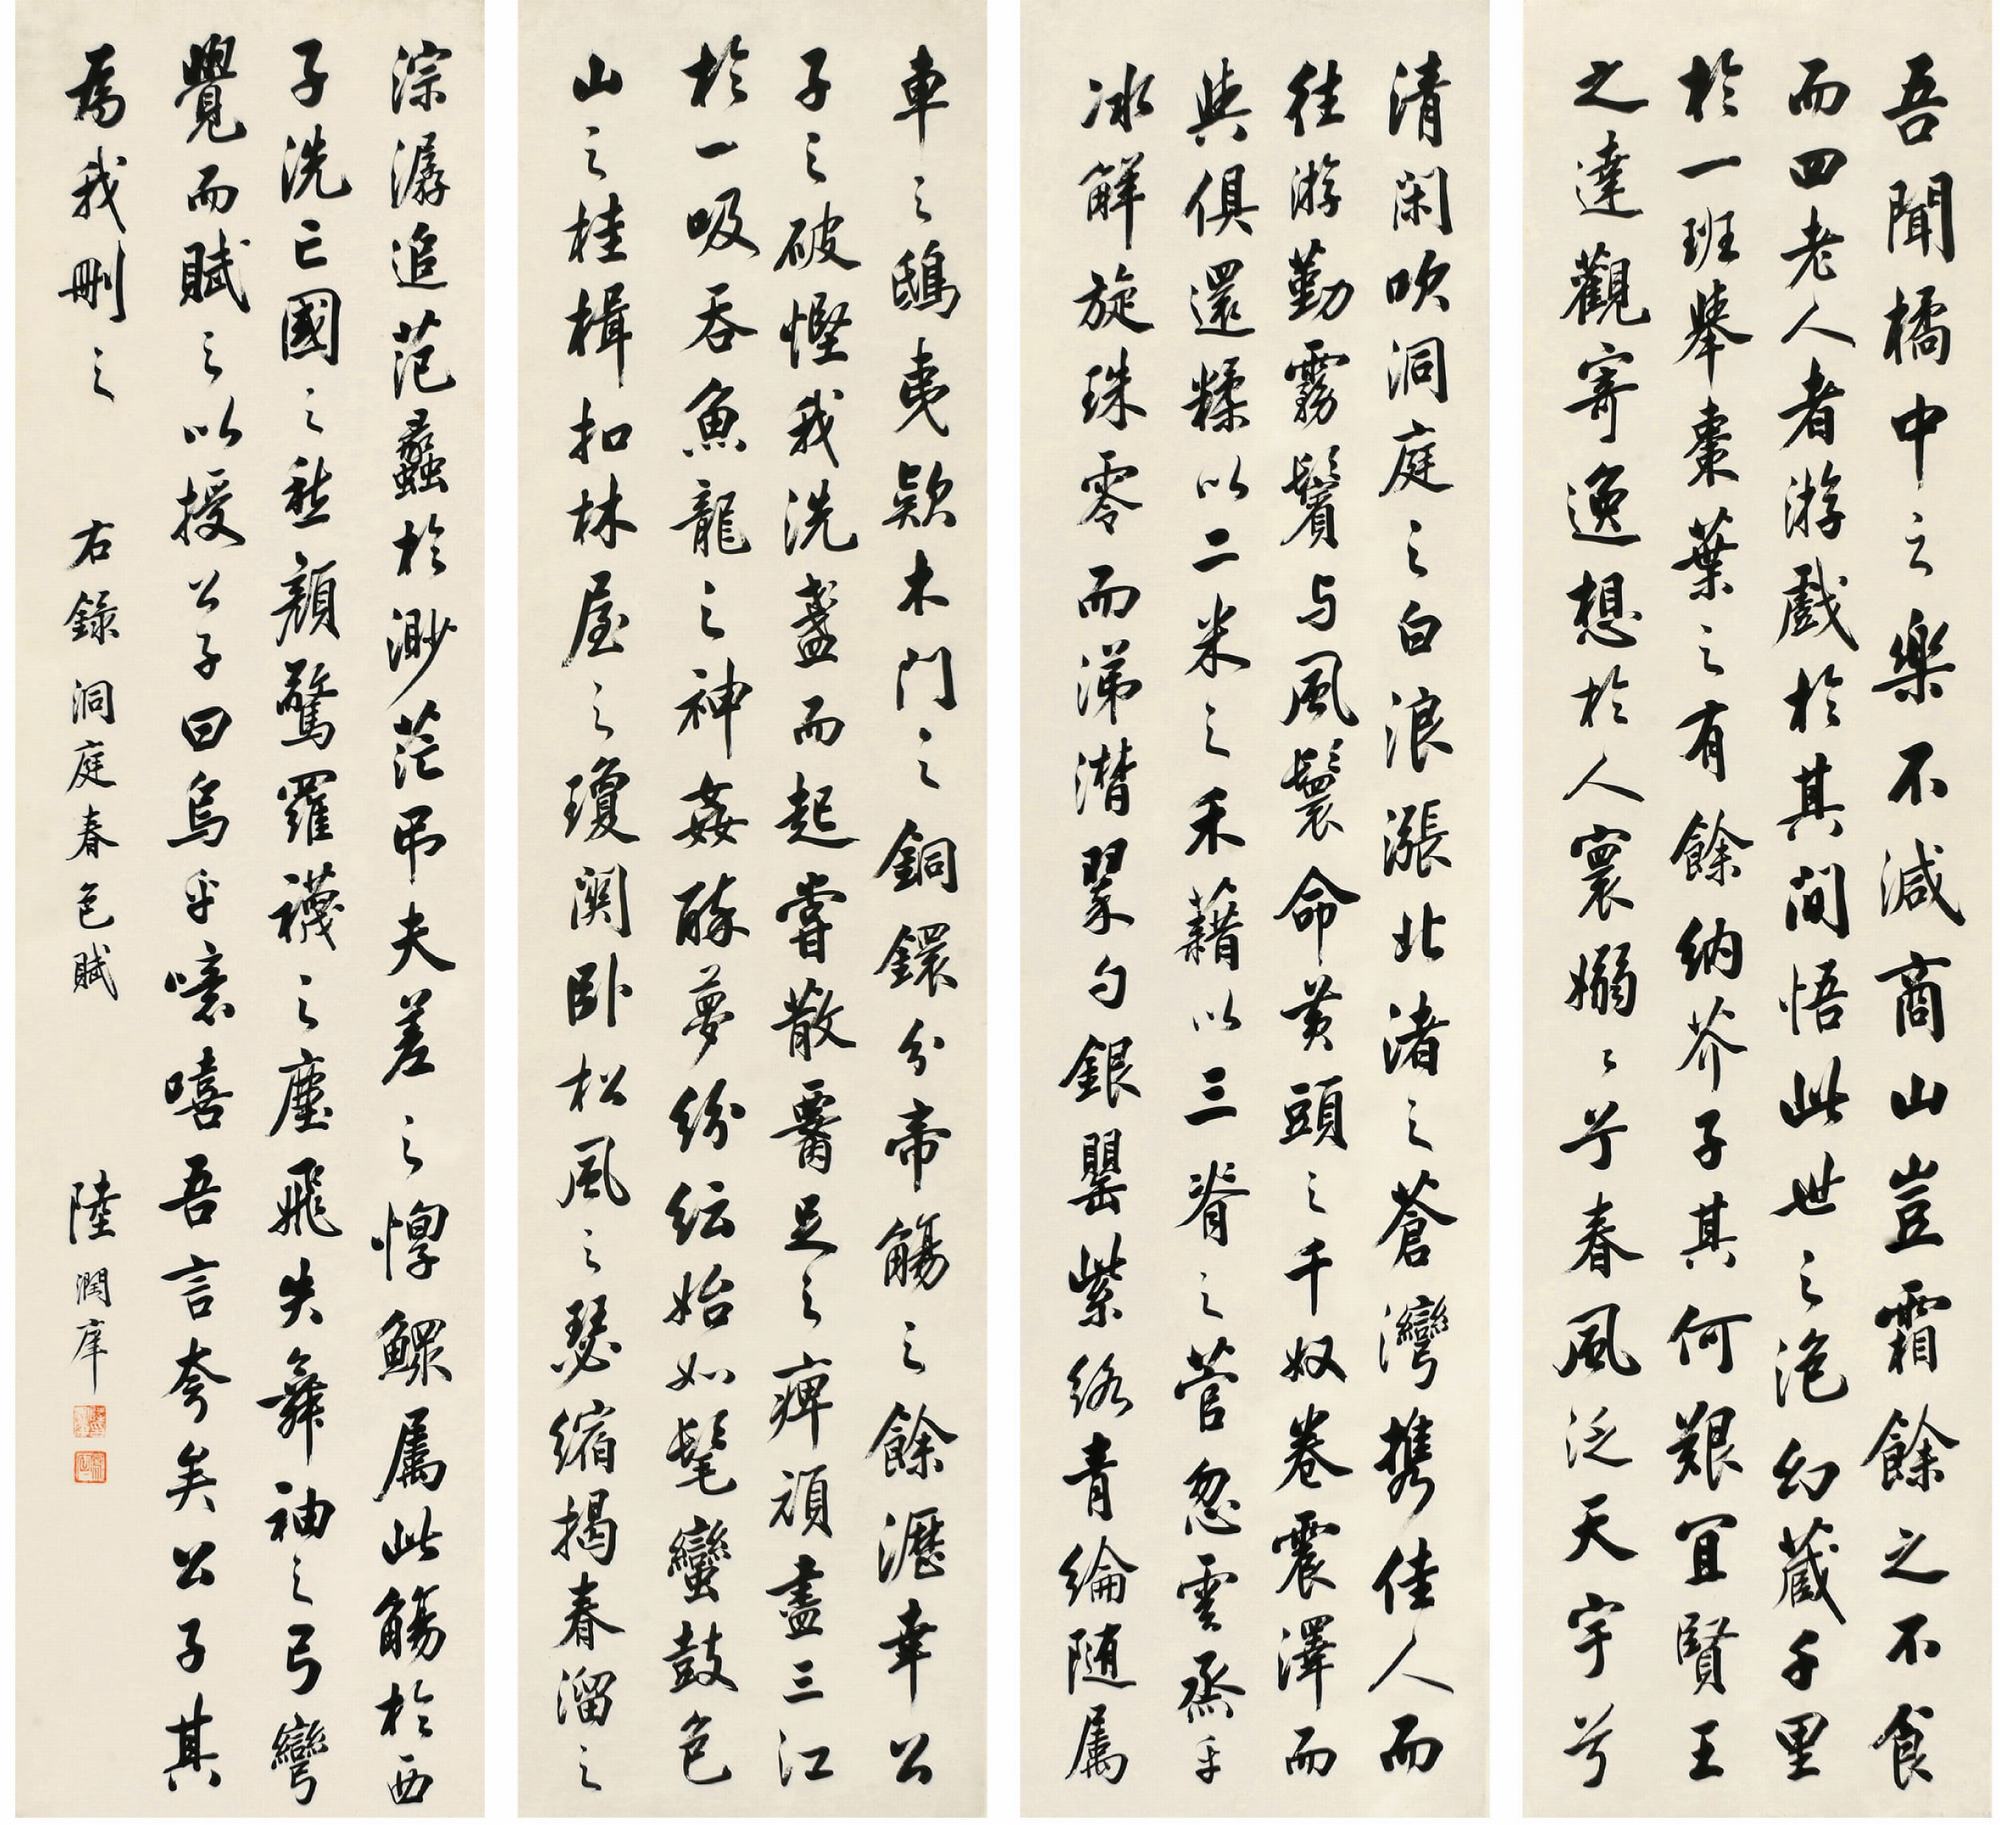 吾聞橘中之樂不減商山豈霜餘之不食
而四老人者游戲於其間悟此世之泡幻藏千里
於一班舉棗葉之有餘納芥子其何艱宜賢王
之達觀寄逸想於人寰嫋〻兮春風泛天宇兮
清閑吹洞庭之白浪漲北渚之蒼灣携佳人而
往游勤霧鬢与風鬟命黃頭之千奴卷震澤而
與俱還糅以二米之禾藉以三脊之菅忽雲烝乎
冰解旋珠零而涕潸翠勺銀罌紫絡青綸随屬
車之鴟夷款木門之銅鐶分帝觴之餘瀝幸公
子之破慳我洗盞而起嘗散腰足之痺頑盡三江
於一吸吞魚龍之神姦醉夢紛紜始如髦蠻鼓包
山之桂楫扣林屋之瓊關臥松風之瑟縮揭春溜之
淙潺追范蠡於渺茫吊夫差之惸鰥屬此觴於西
子洗亡國之愁顏驚羅襪之塵飛失舞袖之弓彎
覺而賦之以授公子曰烏乎噫嘻吾言夸矣公子其
為我刪之 右錄洞庭春色賦 陸潤庠